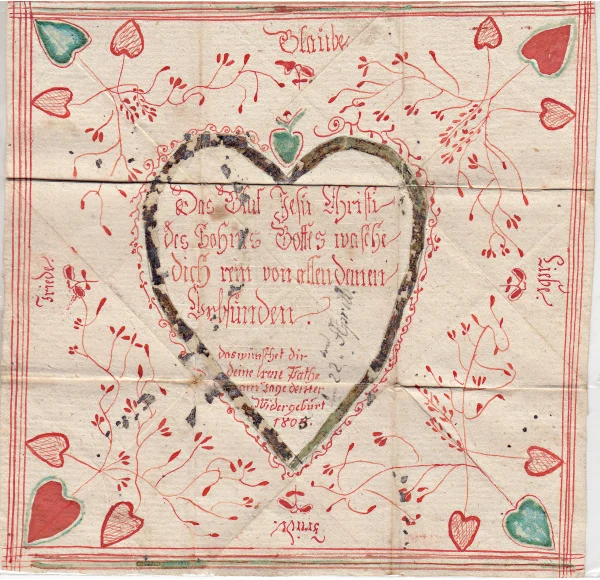 Glaube
Das Blut Jesu Christi
des Sohnes Gottes wasche
dich rein von allen deinen
Erbsünden.
das wünschet dir
deine treue Pathe
tage deiner
Widergeburt
1803.
22. April
Friede
Liebe